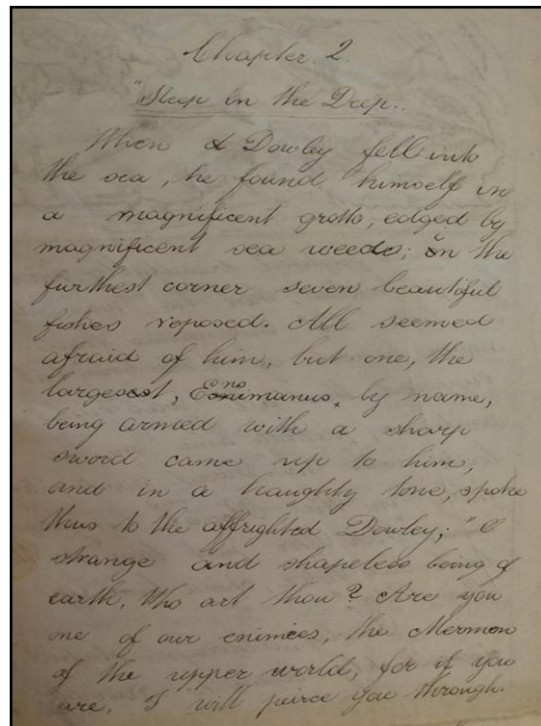 Chapter. 2.
"Sleep in the Deep..
When & Dowley fell into
the sea, he found himself in
a magnificent grotto, edged by
magnificent sea weeds; in the
furthest corner seven beautiful
fishes reposed. All seemed
afraid of him, but one, the
largest, by name,
being armed with a sharp
sword came up to him,
and in a haughty tone, spoke
thus to the affrighted Dowley; "O
strange and shapeless being of
earth, who art thou? Are you
one of our enimies, the Mermen
of the upper world, for if you
are, I will peirce you through.